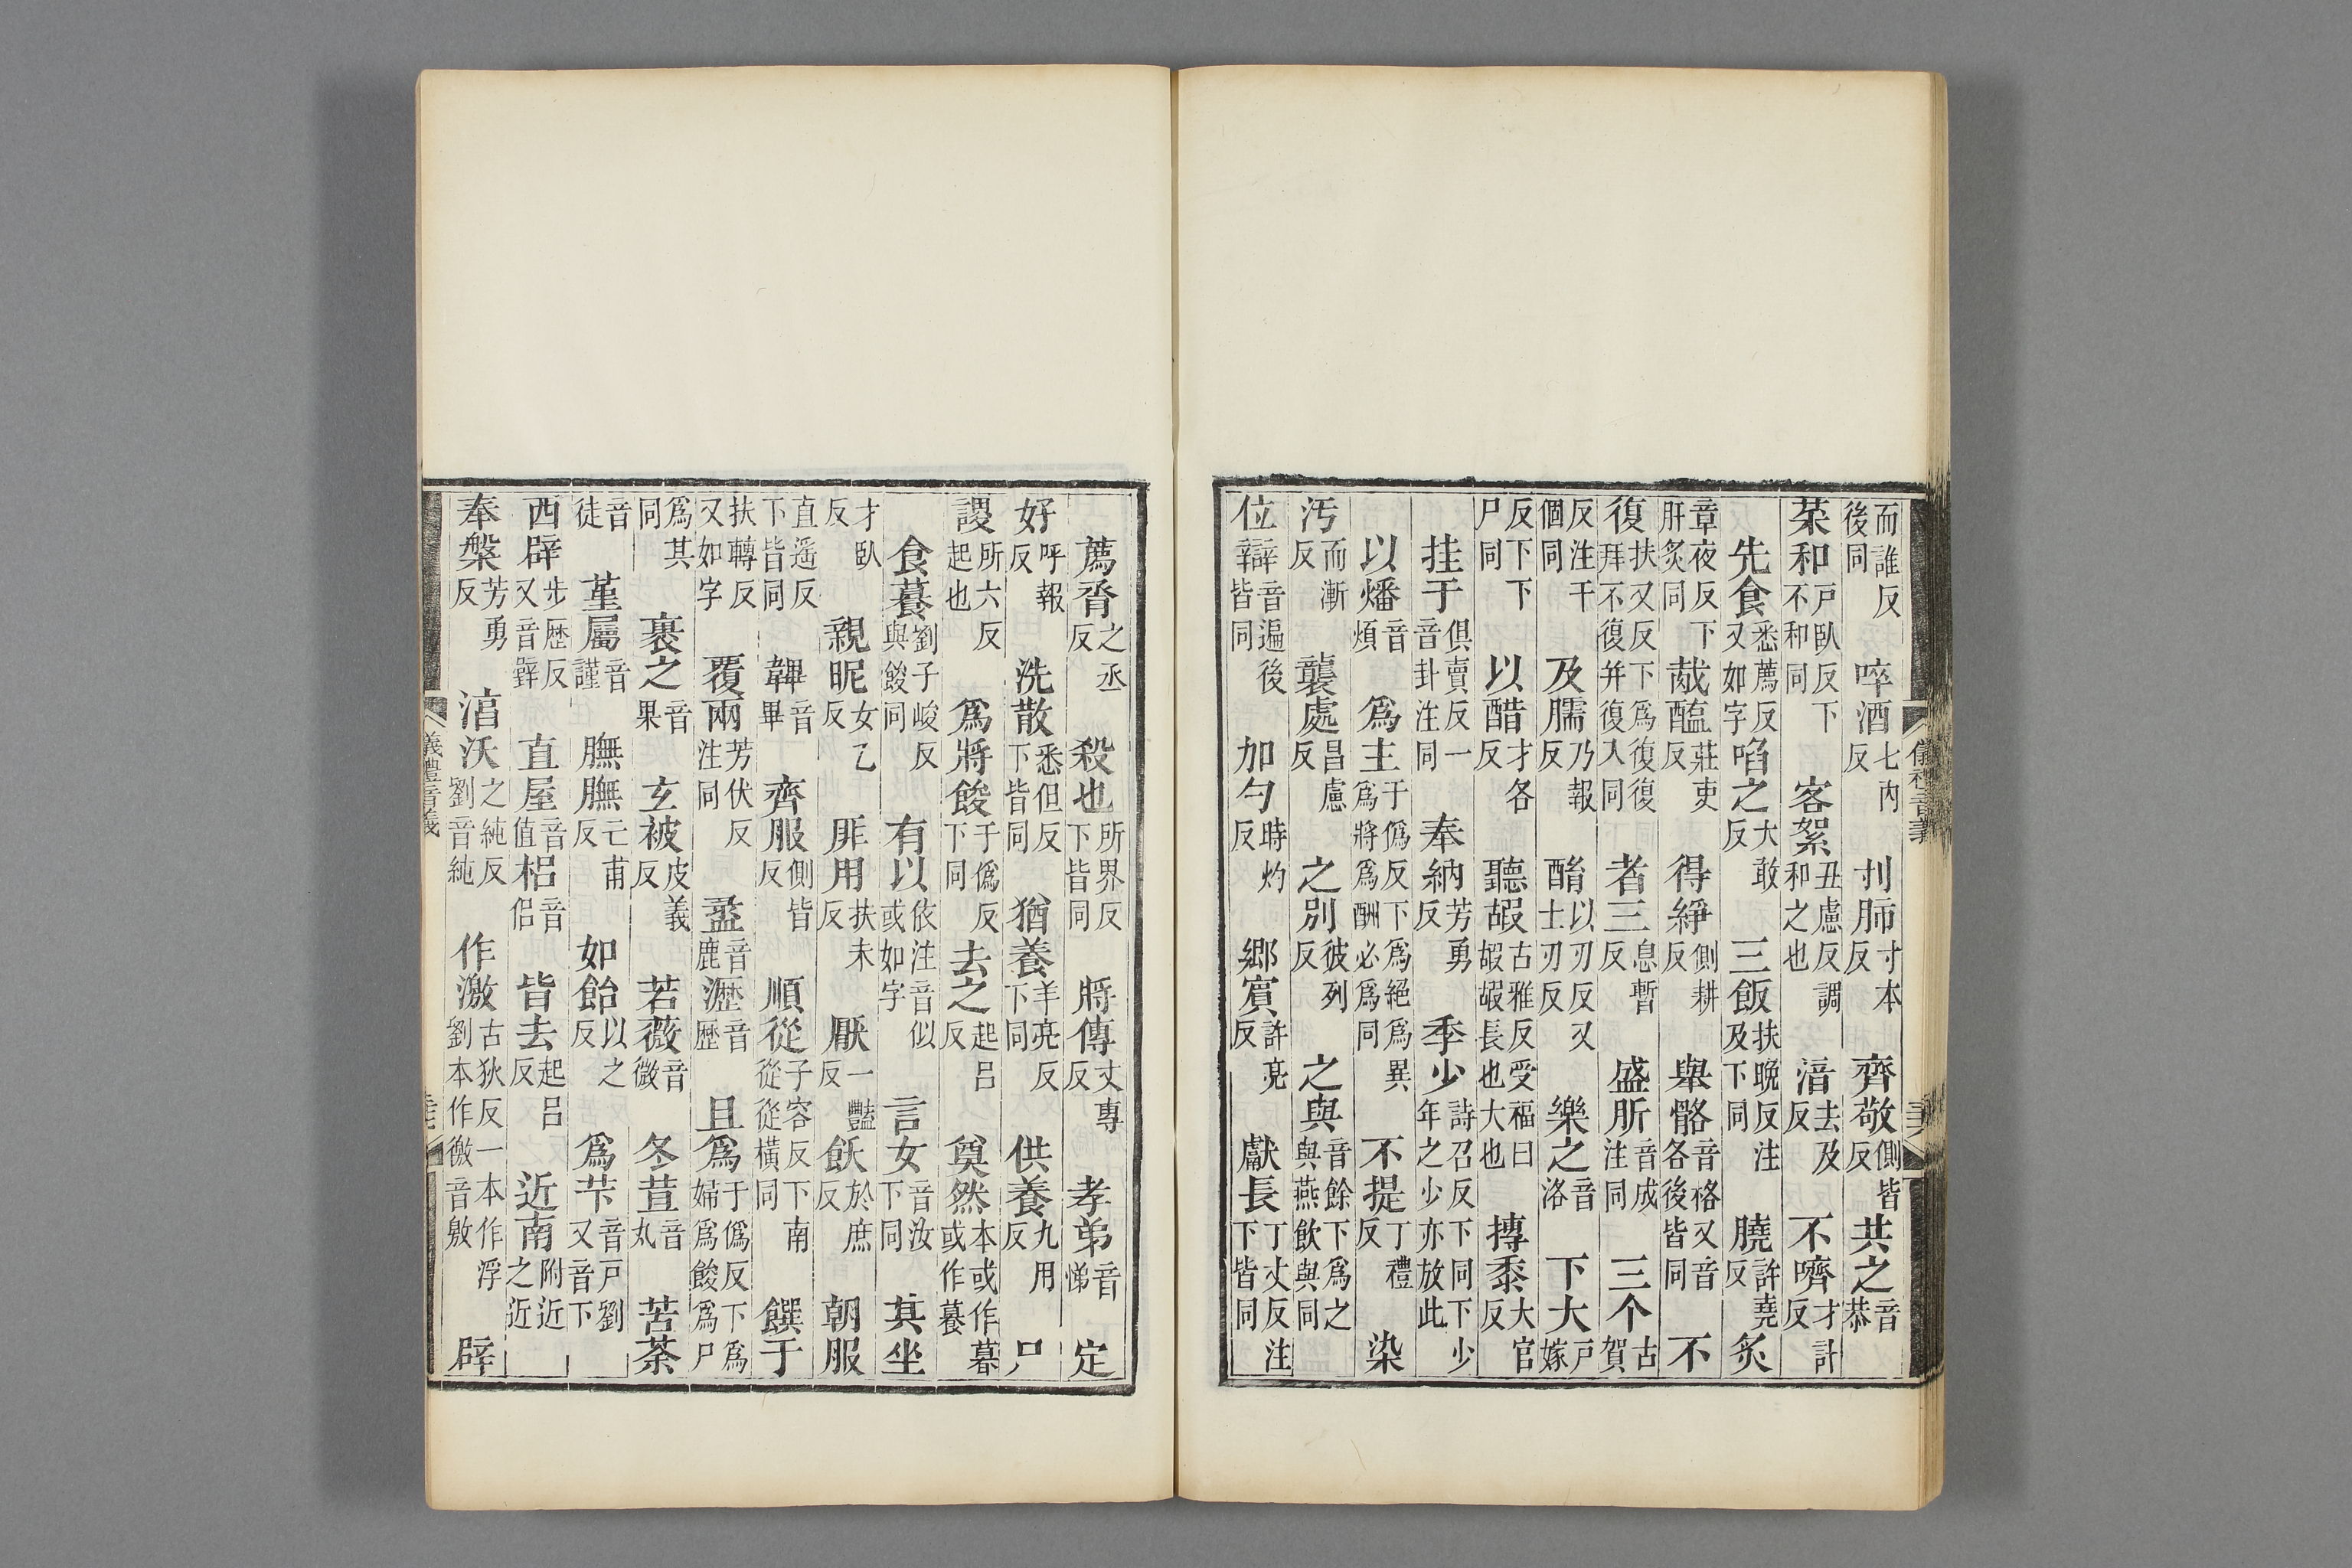 而誰反後同　啐酒七內反　刌肺寸本反　齊敬側皆反　共之音恭
菜和戶臥反下不和同　客絮丑慮反調和之也　湆去及反　不嚌才計反
先食悉薦反又如字　啗之大敢反　三飯扶晚反注及下同　膮許堯反　炙
章夜反下肝炙同　胾醢莊吏反　得綪側耕反　舉骼音格又音各後皆同　不
復扶又反下爲復復拜不復幷復入同　者三息暫反　盛肵音成注同　三个古賀
反注干個同　及臑乃報反　酳以刃反又士刃反　樂之音洛　下大戶嫁
反下下尸同　以醋才各反　聽嘏古雅反受福曰嘏嘏長也大也　摶黍大官反
挂于俱賣反一音卦注同　奉納芳勇反　季少詩召反下同下少年之少亦放此
以燔音煩　爲主于僞反下爲絕爲爲將爲酬必爲同異　不提丁禮反　染
汚而漸反　襲處昌慮反　之別彼列反　之與音餘下爲之與燕飮與同
位辯音遍後皆同　加勺時灼反　鄉賓許亮反　獻長丁丈反注下皆同
儀禮音義
薦脀之丞反　殺也所界反下皆同　將傳丈專反　孝弟音悌　定
好呼報反　洗散悉但反下皆同　猶養羊亮反下同　供養九用反　尸
謖所六反起也　爲將餕于僞反下同　去之起呂反　奠然本或作暮或作䬸
食䬸劉子峻反與餕同　有以依注音似或如字　言女音汝下同　其坐
才臥反　親昵女乙反　厞用扶未反　厭一豔反　飫於庶反　朝服
直遥反下皆同　韠音畢　齊服側皆反　順從子容反下南從從橫同　饌于
扶轉反又如字　覆兩芳伏反注同　盝音鹿　瀝音歷　且爲于僞反下爲婦爲餕爲尸
爲其同　裹之音果　玄被皮義反　若薇音微　冬荁音丸　苦荼
音徒　堇屬音謹　膴膴亡甫反　如飴以之反　爲芐音戶劉又音下
西辟步歷反又音辟　直屋音值　梠音侶　皆去起呂反　近南附近之近
奉槃芳勇反　湻沃之純反劉音純　作激古狄反一本作浮劉本作徼音敫　辟
義禮音義